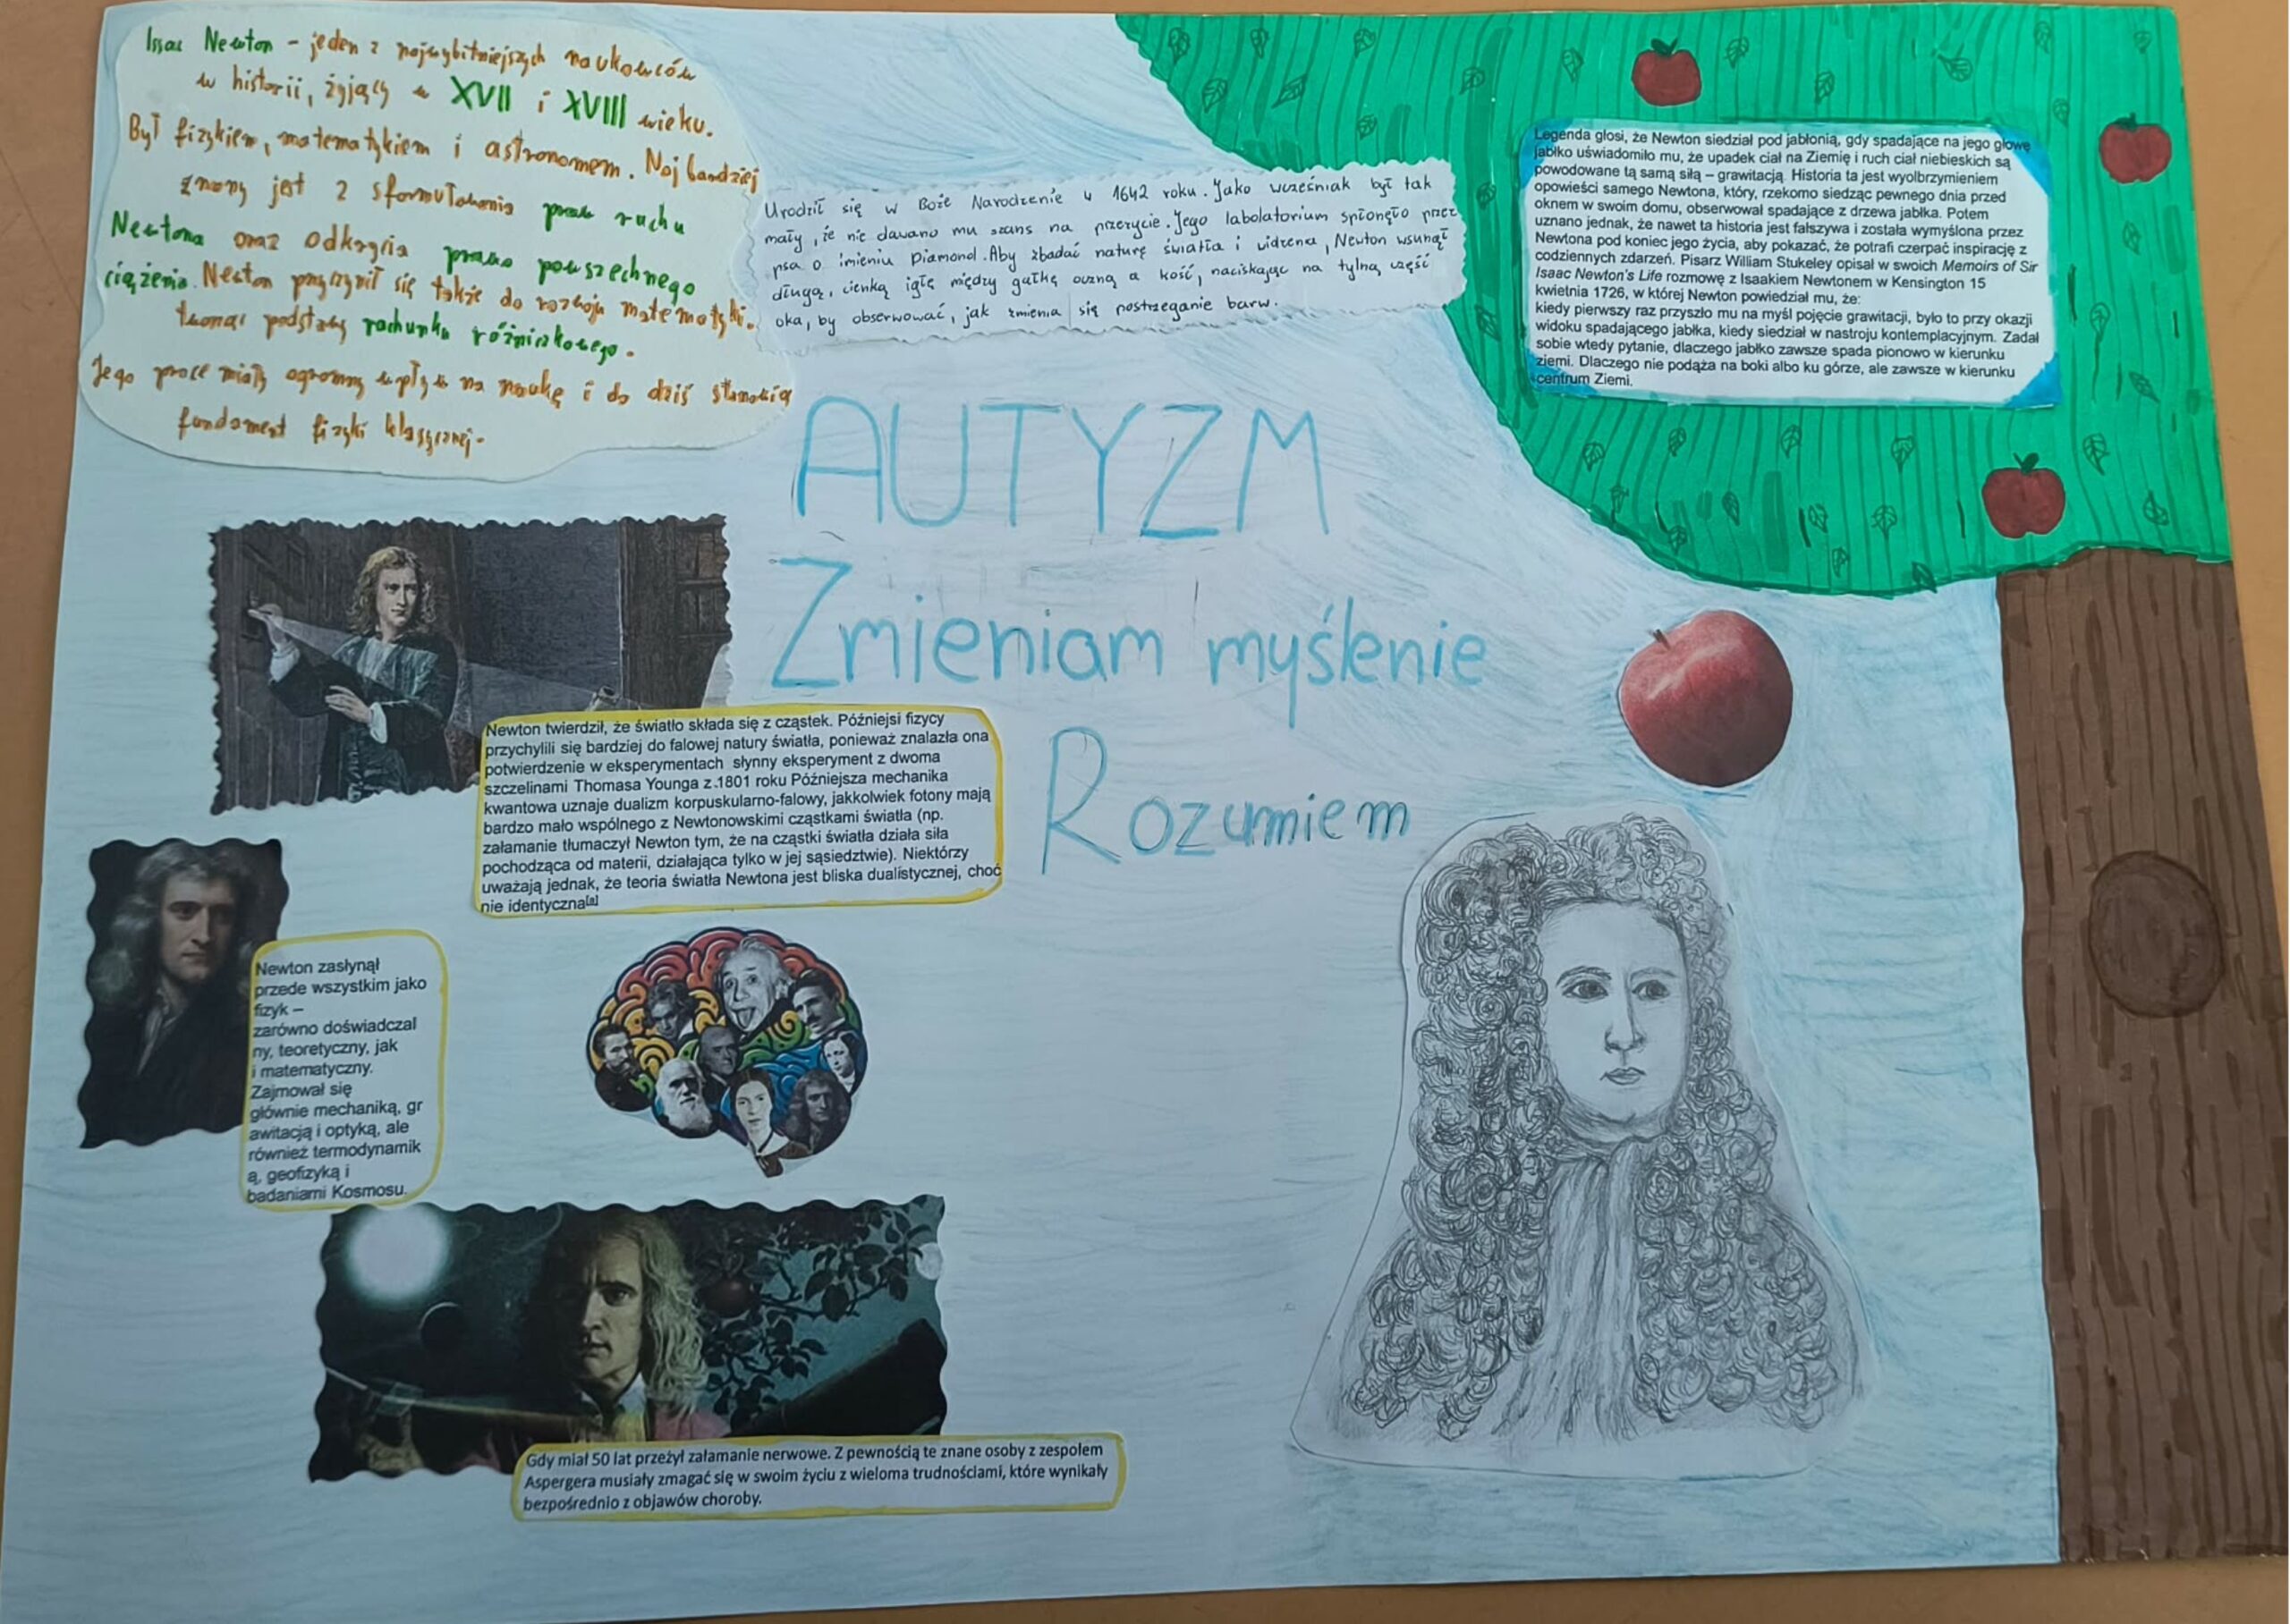 Issac Newton - jeden z najwybitniejszych naukowców
w historii, żyjący w XVII i XVIII wieku.
Był fizykiem, matematykiem i astronomem. Najbardziej
znany jest z sformułowania praw ruchu
Newtona oraz odkrycia prawa powszechnego
ciążenia. Newton przyczynił się także do rozwoju matematyki.
tworząc podstawy rachunku różniczkowego.
Jego prace miały ogromny wpływ na naukę i do dziś stanowią
fundament fizyki klasycznej.
Urodził się w Boże Narodzenie w 1642 roku. Jako wcześniak był tak
mały, że nie dawano mu szans na przeżycie. Jego labolatorium spłonęło przez
psa o imieniu Diamond. Aby zbadać naturę światła i widzenia, Newton wsunął
długą, cienką igłę między gałkę oczną a kość, naciskając na tylną część
oka, by obserwować, jak zmienia się postrzeganie barw.
Legenda głosi, że Newton siedział pod jabłonią, gdy spadające na jego głowę
jabłko uświadomiło mu, że upadek ciał na Ziemię i ruch ciał niebieskich są
powodowane tą samą siłą – grawitacją. Historia ta jest wyolbrzymieniem
opowieści samego Newtona, który, rzekomo siedząc pewnego dnia przed
oknem w swoim domu, obserwował spadające z drzewa jabłka. Potem
uznano jednak, że nawet ta historia jest fałszywa i została wymyślona przez
Newtona pod koniec jego życia, aby pokazać, że potrafi czerpać inspirację z
codziennych zdarzeń. Pisarz William Stukeley opisał w swoich Memoirs of Sir
Isaac Newton's Life rozmowę z Isaakiem Newtonem w Kensington 15
kwietnia 1726, w której Newton powiedział mu, że:
kiedy pierwszy raz przyszło mu na myśl pojęcie grawitacji, było to przy okazji
widoku spadającego jabłka, kiedy siedział w nastroju kontemplacyjnym. Zadał
sobie wtedy pytanie, dlaczego jabłko zawsze spada pionowo w kierunku
ziemi. Dlaczego nie podąża na boki albo ku górze, ale zawsze w kierunku
centrum Ziemi.
AUTYZM
Zmieniam myślenie
Rozumiem
Newton twierdził, że światło składa się z cząstek. Późniejsi fizycy
przychylili się bardziej do falowej natury światła, ponieważ znalazła ona
potwierdzenie w eksperymentach słynny eksperyment z dwoma
szczelinami Thomasa Younga z.1801 roku Późniejsza mechanika
kwantowa uznaje dualizm korpuskularno-falowy, jakkolwiek fotony mają
bardzo mało wspólnego z Newtonowskimi cząstkami światła (np.
załamanie tłumaczył Newton tym, że na cząstki światła działa siła
pochodząca od materii, działająca tylko w jej sąsiedztwie). Niektórzy
uważają jednak, że teoria światła Newtona jest bliska dualistycznej, choć
nie identyczna[a]
Newton zasłynął
przede wszystkim jako
fizyk –
zarówno doświadczal
ny, teoretyczny, jak
i matematyczny.
Zajmował się
głównie mechaniką, gr
awitacją i optyką, ale
również termodynamik
ą, geofizyką i
badaniami Kosmosu.
Gdy miał 50 lat przeżył załamanie nerwowe. Z pewnością te znane osoby z zespołem
Aspergera musiały zmagać się w swoim życiu z wieloma trudnościami, które wynikały
bezpośrednio z objawów choroby.